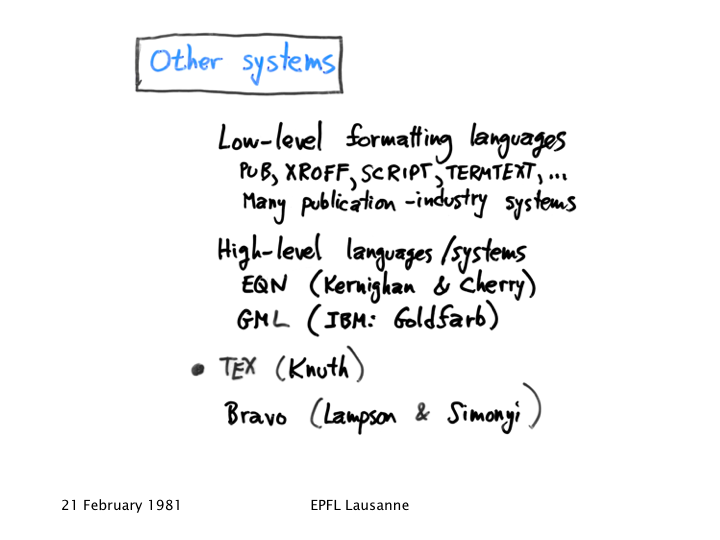 Other systems
Low-level formatting languages
PUB, XROFF, SCRIPT, TERMTEXT, ...
Many publication-industry systems
High-level languages/systems
EQN (Kernighan & Cherry)
GML (IBM: Goldfarb)
• TEX (Knuth)
Bravo (Lampson & Simonyi)
21 February 1981 EPFL Lausanne